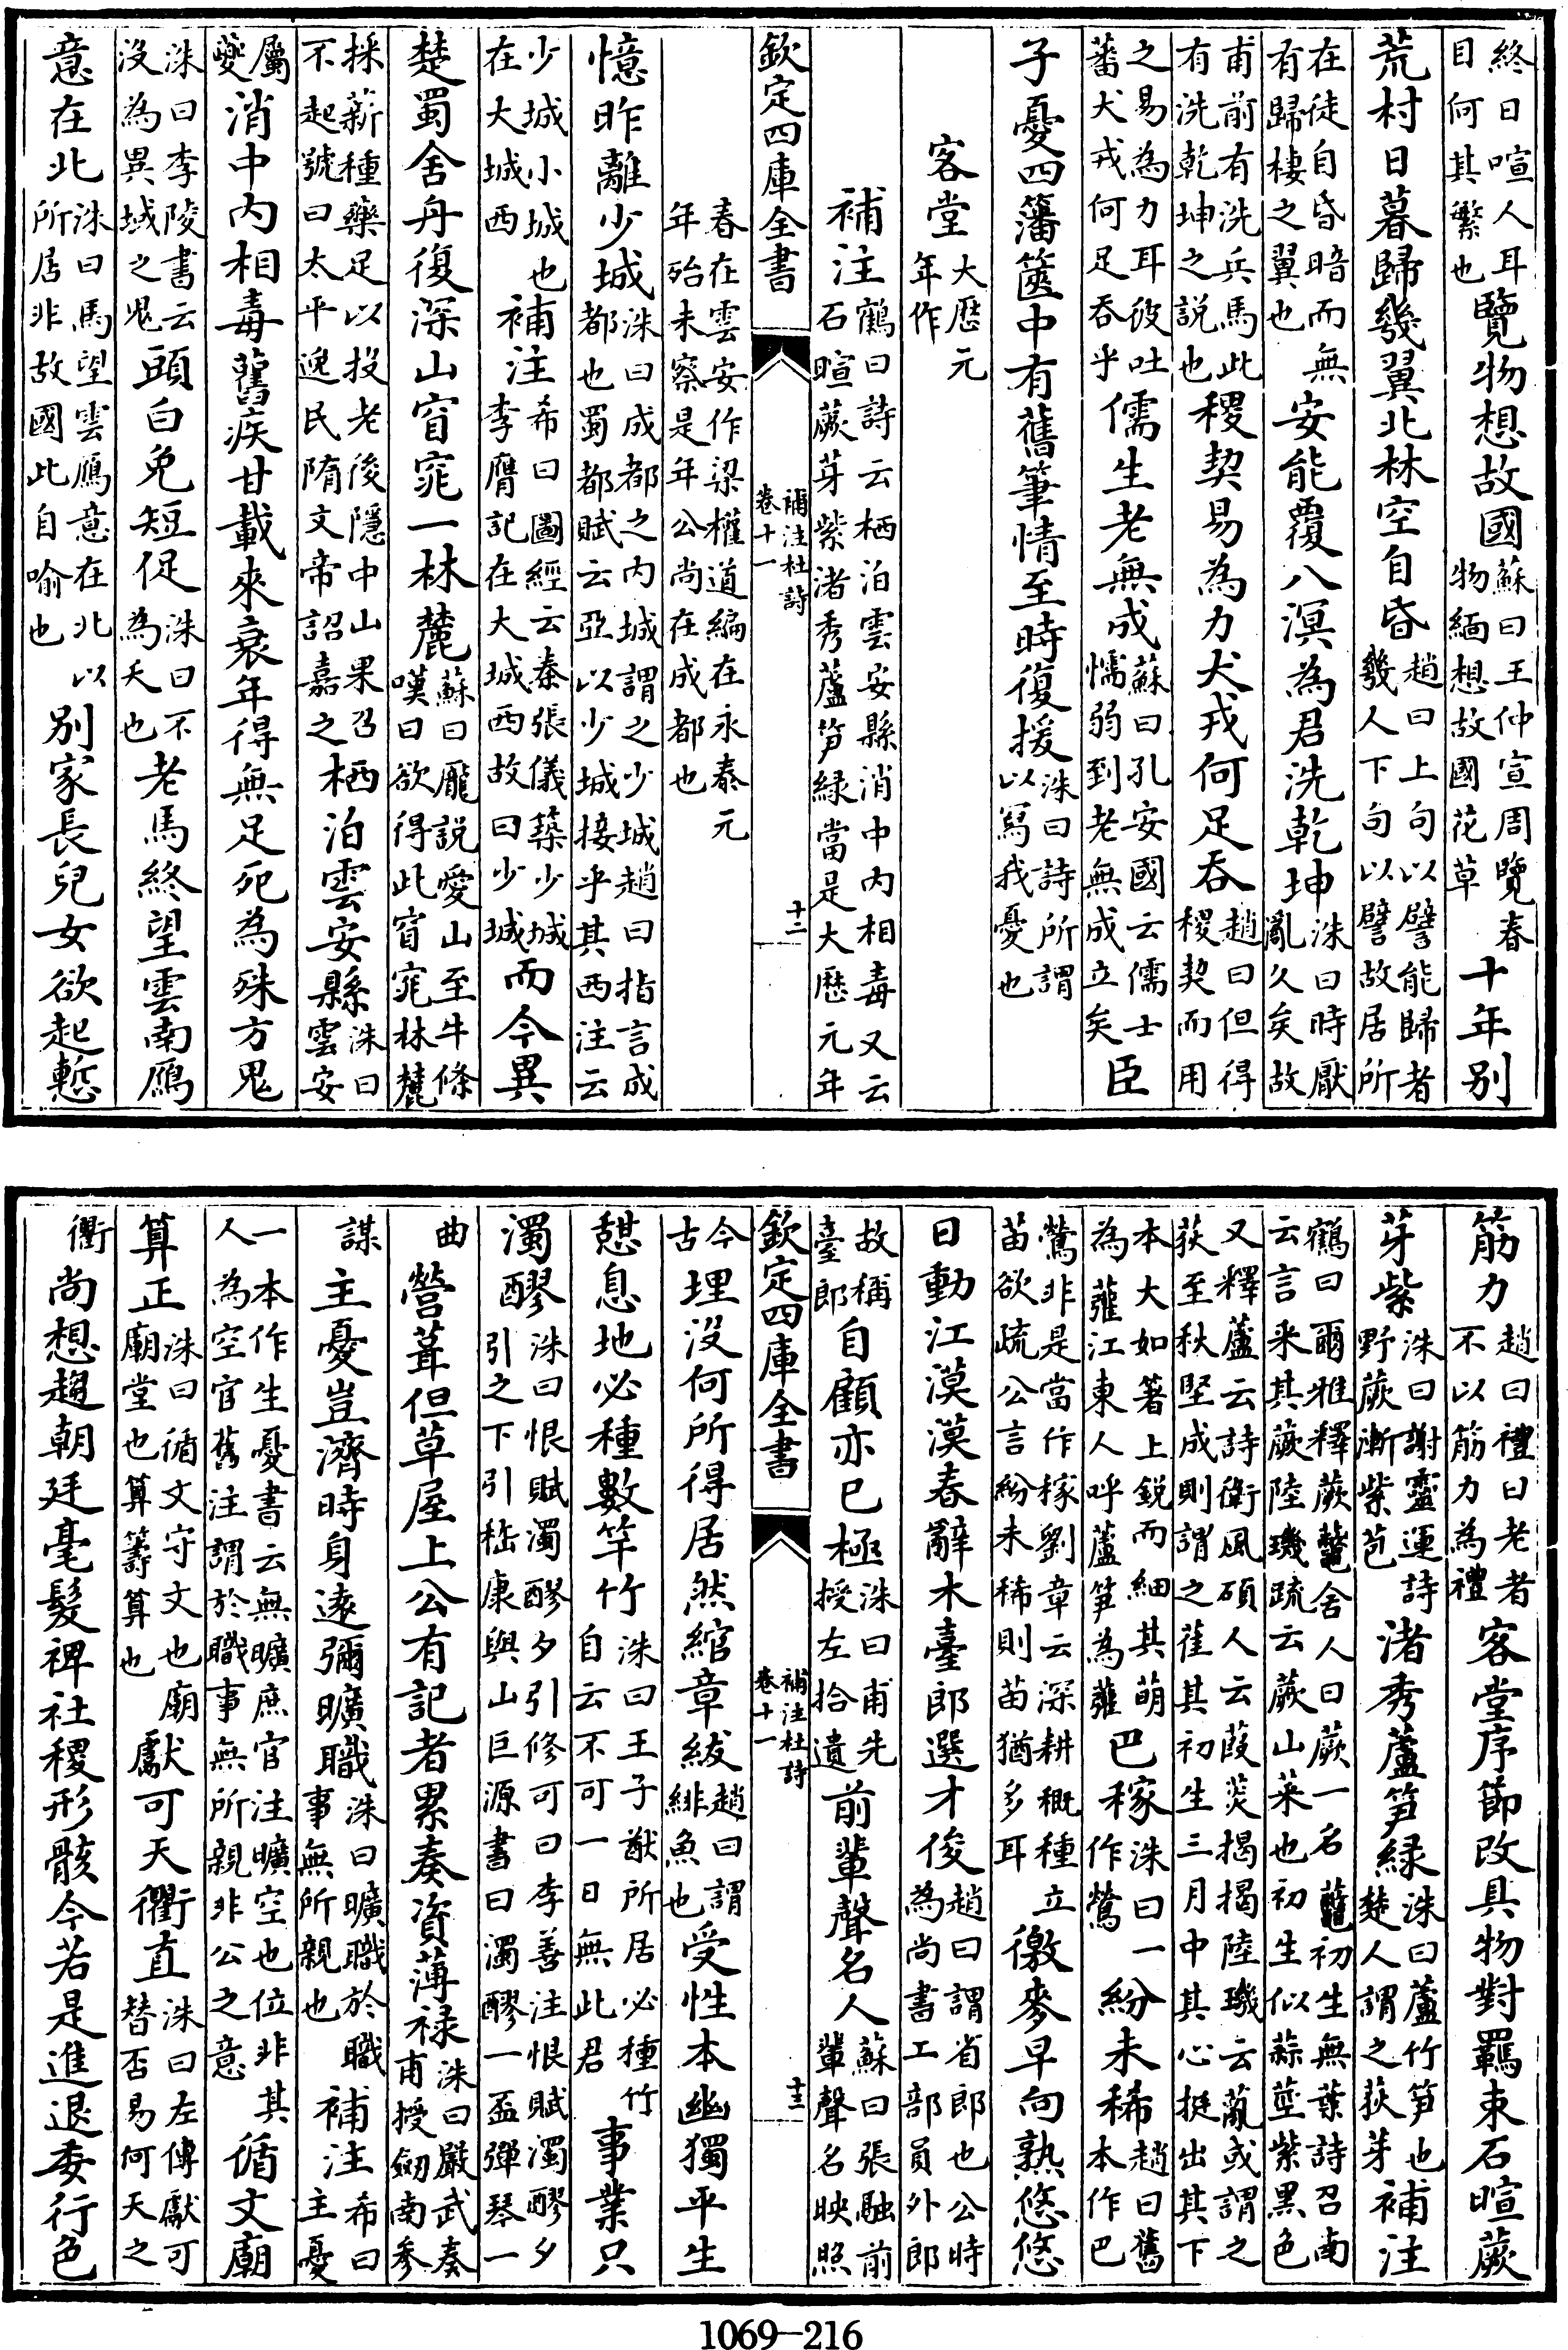 終日喧人耳目何其繁也覽物想故國蘇曰王仲宣周覽春物緬想故國花草十年别
荒村日暮歸幾翼北林空自昏趙曰上句以譬能歸者幾人下句以譬故居所
在徒自昏暗而無有歸棲之翼也安能覆八溟為君洗乾坤洙曰時厭亂久矣故
甫前有洗兵馬此有洗乾坤之説也稷契易為力犬戎何足吞趙曰但得稷契而用
之易為力耳彼吐蕃犬戎何足吞乎儒生老無成蘇曰孔安國云儒士懦弱到老無成立矣臣
子憂四籓篋中有舊筆情至時復援洙曰詩所謂以寫我憂也
客堂大歴元年作
補注鶴曰詩云栖泊雲安縣消中内相毒又云石暄蕨芽紫渚秀蘆笋緑當是大歴元年
欽定四庫全書
補注杜詩
卷十一
十二
春在雲安作梁權道編在永泰元年殆未察是年公尚在成都也
憶昨離少城洙曰成都之内城謂之少城趙曰指言成都也蜀都賦云亞以少城接乎其西注云
少城小城也在大城西補注希曰圖經云秦張儀築少城李膺記在大城西故曰少城而今異
楚蜀舍舟復深山窅窕一林麓蘇曰龎説愛山至牛條嘆曰欲得此窅窕林麓
採薪種藥足以投老後隱中山果召不起號曰太平逸民隋文帝詔嘉之栖泊雲安縣洙曰雲安
屬夔消中内相毒舊疾甘載來衰年得無足死為殊方鬼
洙曰李陵書云没為異域之鬼頭白免短促洙曰不為夭也老馬終望雲南鴈
意在北洙曰馬望雲鴈意在北以所居非故國此自喻也别家長兒女欲起慙
筋力趙曰禮曰老者不以筋力為禮客堂序節改具物對羈束石暄蕨
芽紫洙曰謝靈運詩野蕨漸紫苞渚秀蘆笋緑洙曰蘆竹笋也楚人謂之荻芽補注
鶴曰爾雅釋蕨虌舍人曰蕨一名虌初生無葉詩召南云言采其蕨陸璣疏云蕨山菜也初生似蒜莖紫黑色
又釋蘆云詩衛風碩人云葭菼揭揭陸璣云薍或謂之荻至秋堅成則謂之萑其初生三月中其心挺出其下
本大如箸上鋭而細其萌為虇江東人呼蘆笋為虇巴稼洙曰一作鶯紛未稀趙曰舊本作巴
鶯非是當作稼劉章云深耕穊種立苗欲疏公言紛未稀則苗猶多耳徼麥早向熟悠悠
日動江漠漠春辭木臺郎選才俊趙曰謂省郎也公時為尚書工部員外郎
故稱臺郎自顧亦已極洙曰甫先授左拾遺前輩聲名人蘇曰張融前輩聲名映照
欽定四庫全書
補注杜詩
卷十一
十三
今古埋没何所得居然綰章紱趙曰謂緋魚也受性本幽獨平生
憩息地必種數竿竹洙曰王子猷所居必種竹自云不可一日無此君事業只
濁醪洙曰恨賦濁醪夕引修可曰李善注恨賦濁醪夕引之下引嵇康與山巨源書曰濁醪一盃彈琴一
曲營葺但草屋上公有記者累奏資薄禄洙曰嚴武奏甫授劒南參
謀主憂豈濟時身遠彌曠職洙曰曠職於職事無所親也補注希曰主憂
一本作生憂書云無曠庶官注曠空也位非其人為空官舊注謂於職事無所親非公之意循文廟
算正洙曰循文守文也廟廟堂也算籌算也獻可天衢直洙曰左傳獻可替否易何天之
衢尚想趨朝廷毫髮裨社稷形骸今若是進退委行色
1069-216